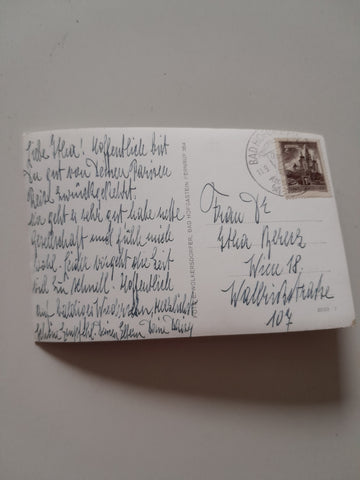 Liebe Etha! Hoffentlich bist
Du gut von Deiner Pariser
Reise zurückgekehrt.
Mir geht es sehr gut habe nette
Gesellschaft und fühle mich
wohl. Leider vergeht die Zeit
viel zu schnell! Hoffentlich
auf baldiges Wiedersehen, herzlichst
Deine
WOLKERSDORFER, BAD HOFGASTEIN FERNRUF 354
BAD HOFGASTEIN
Frau Dr
Etha
Wien 18,
Straße
107